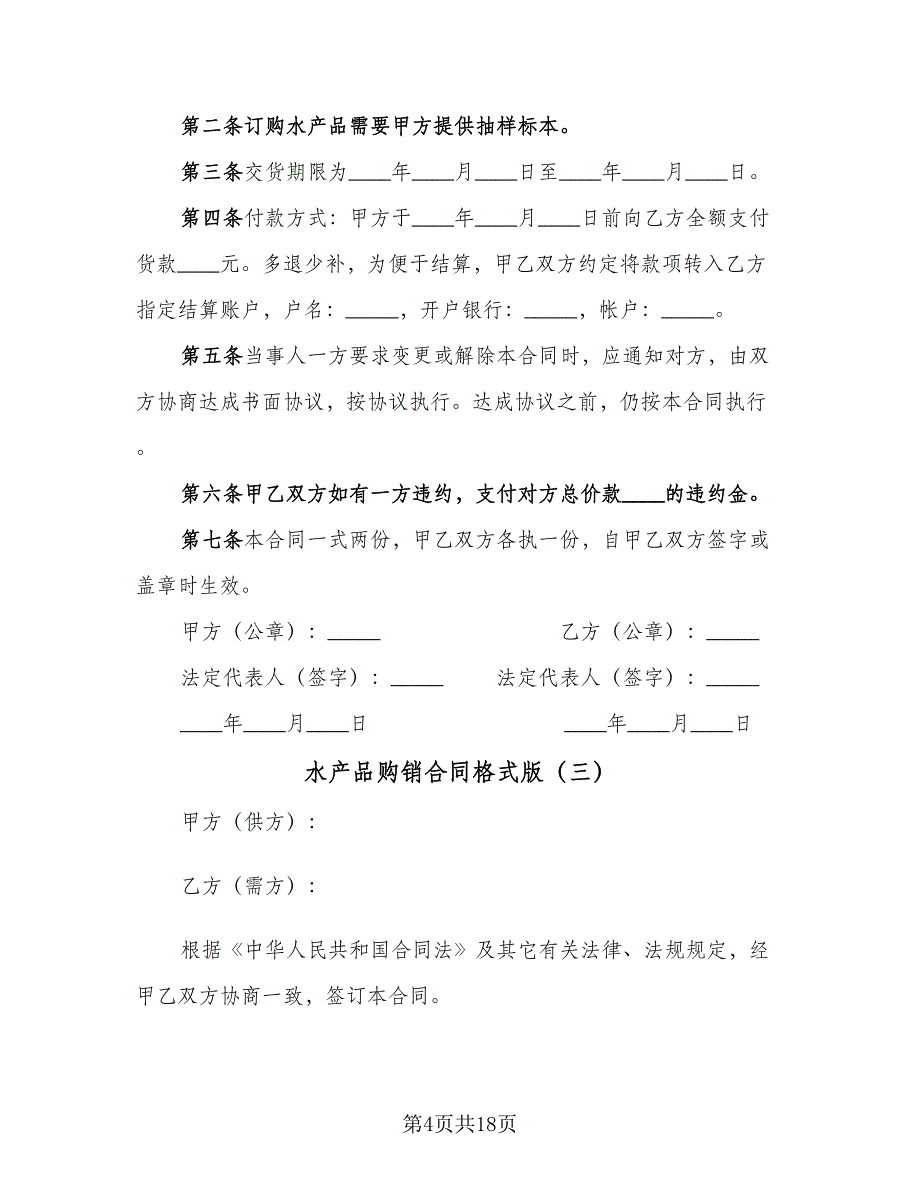 第二条订购水产品需要甲方提供抽样标本。
第三条交货期限为____年____月____日至____年____月____日。
第四条付款方式：甲方于____年____月____日前向乙方全额支付
货款____元。多退少补，为便于结算，甲乙双方约定将款项转入乙方
指定结算账户，户名：_____，开户银行：_____，帐户：_____。
第五条当事人一方要求变更或解除本合同时，应通知对方，由双
方协商达成书面协议，按协议执行。达成协议之前，仍按本合同执行
。
第六条甲乙双方如有一方违约，支付对方总价款____的违约金。
第七条本合同一式两份，甲乙双方各执一份，自甲乙双方签字或
盖章时生效。
甲方（公章）：_____ 乙方（公章）：_____
法定代表人（签字）：_____ 法定代表人（签字）：_____
____年____月____日 ____年____月____日
水产品购销合同格式版（三）
甲方（供方）：
乙方（需方）：
根据《中华人民共和国合同法》及其它有关法律、法规规定，经
甲乙双方协商一致，签订本合同。
第4页共18页